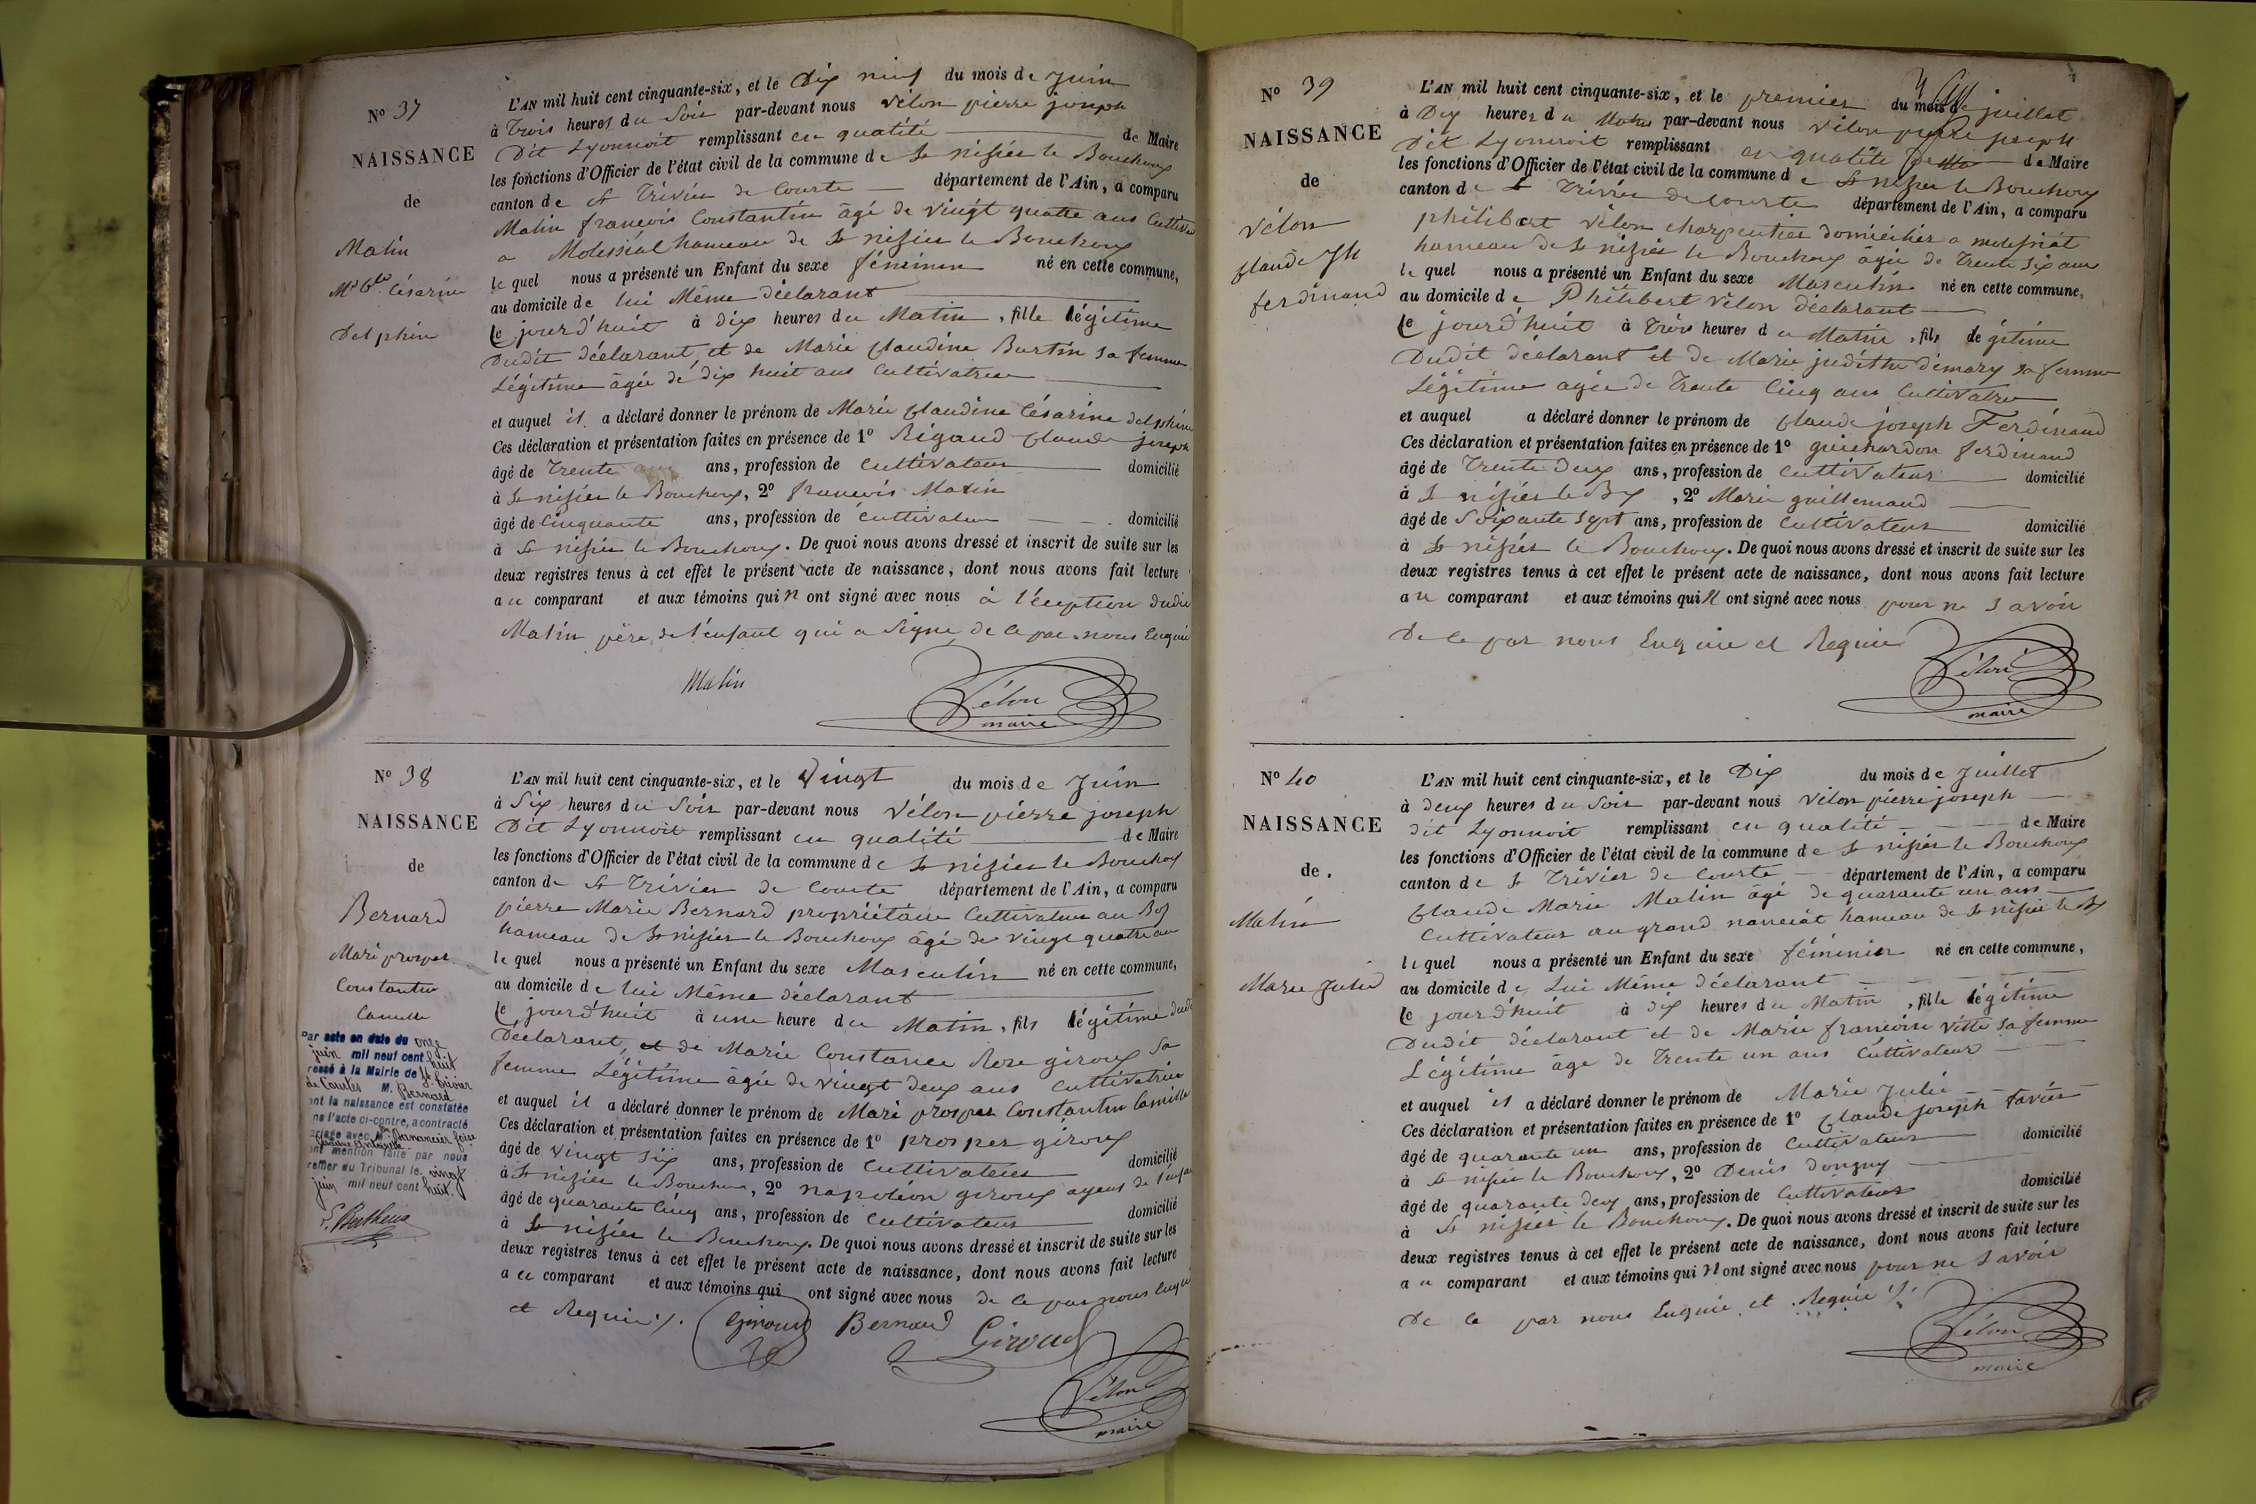 N° 37
NAISSANCE
de
Matin
Mie Cl.de Césarine
Delphine
L'AN mil huit cent cinquante-six, et le Dix neuf du mois de Juin
à Trois heures du Soir par-devant nous Vélon pierre joseph
Dit Lyonnoit remplissant en qualité de Maire
les fonctions d'Officier de l'état civil de la commune de St nisier le Bouchoux
canton de St Trivier de Courte département de l'Ain, a comparu
Matin françois Constantin âgé de vingt quatre ans Cultiva
a Molissiat hameau de St nisier le Bouchoux
le quel nous a présenté un Enfant du sexe féminin né en cette commune,
au domicile de lui Même déclarant
le jourd'huit à dix heures du Matin, fille légitime
Dudit déclarant et de Marie Claudine Burtin sa femme
Légitime âgée de dix huit ans Cultivatrice
et auquel il a déclaré donner le prénom de Marie Claudine Césarine delphine
Ces déclaration et présentation faites en présence de 1° Rigaud Claude joseph
âgé de Trente ans, profession de Cultivateur domicilié
à St nisier le Bouchoux, 2° françois Matin
âgé de Cinquante ans, profession de Cultivateur domicilié
à St nisier le Bouchoux. De quoi nous avons dressé et inscrit de suite sur les
deux registres tenus à cet effet le présent acte de naissance, dont nous avons fait lecture
au comparant et aux témoins qui n ont signé avec nous à l'éception dudit
Matin père de l'enfant qui a Signé de ce par nous Enquie
Matin
Vélon
maire
N° 38
NAISSANCE
de
Bernard
Marie prosper
Constantin
Camille
Par acte en date du onze
juin mil neuf cent huit
ressé à la Mairie de St Trivier
de Courtes M. Bernard
ont la naissance est constatée
ns l'acte ci-contre, a contracté
ariage avec
ont mention faite par nous
reffier du Tribunal le vingt
juin mil neuf cent huit.
L'AN mil huit cent cinquante-six, et le Vingt du mois de Juin
à Six heures du Soir par-devant nous Vélon piérre joseph
Dit Lyonnoit remplissant en qualité de Maire
les fonctions d'Officier de l'état civil de la commune de St nisier le Bouchoux
canton de St Trivier de Courte département de l'Ain, a comparu
pierre Marie Bernard propriétaire Cultivateur au Bos
hameau de St nisier le Bouchoux âgé de vingt quatre ans
le quel nous a présenté un Enfant du sexe Masculin né en cette commune,
au domicile de lui Même déclarant
le jourd'huit à une heure du Matin, fils légitime dudit
Déclarant, et de Marie Constance Rose giroux sa
femme Légitime âgée de vingt deux ans Cultivatrice
et auquel il a déclaré donner le prénom de Marie prosper Constantin Camille
Ces déclaration et présentation faites en présence de 1° prosper giroux
âgé de vingt six ans, profession de Cultivateur domicilié
à St nizier le Bouchoux, 2° napoléon giroux ayeul de l'enfant
âgé de quarante Cinq ans, profession de Cultivateur domicilié
à St nisier le Bouchoux. De quoi nous avons dressé et inscrit de suite sur les
deux registres tenus à cet effet le présent acte de naissance, dont nous avons fait lecture
au comparant et aux témoins qui ont signé avec nous de ce par nous enquie
et Requie
Giroud Bernard Giroud
Vélon
maire
N° 39
NAISSANCE
de
Vélon
Claude Jh
ferdinand
L'AN mil huit cent cinquante-six, et le premier du mois de juillet
à Dix heures du Matin par-devant nous Vélon pierre joseph
Dit Lyonnoit remplissant en qualité de Maire
les fonctions d'Officier de l'état civil de la commune de St nisier le Bouchoux
canton de St Trivier de Courte département de l'Ain, a comparu
philibert vélon charpentier domicilier a molissiat
hameau de St nisier le Bouchoux âgé de Trente six ans
le quel nous a présenté un Enfant du sexe Masculin né en cette commune,
au domicile de Philibert vélon déclarant
le jourd'huit à Trois heures du Matin, fils légitime
Dudit déclarant et de Marie judithe démary sa femme
Légitime agée de Trente Cinq ans Cultivatrice
et auquel a déclaré donner le prénom de Claude joseph Ferdinand
Ces déclaration et présentation faites en présence de 1° guichardon ferdinand
âgé de Trente Deux ans, profession de Cultivateur domicilié
à St nisier le Bx, 2° Marie guillemaud
âgé de Soixante Sept ans, profession de Cultivateur domicilié
à St nisier le Bouchoux. De quoi nous avons dressé et inscrit de suite sur les
deux registres tenus à cet effet le présent acte de naissance, dont nous avons fait lecture
au comparant et aux témoins qui n ont signé avec nous pour ne savoir
De ce par nous Enquie et Requie
Vélon
maire
N° 40
NAISSANCE
de
Matin
Marie Julie
L'AN mil huit cent cinquante-six, et le Dix du mois de Juillet
à deux heures du Soir par-devant nous Vélon pierre joseph
dit Lyonnoit remplissant en qualité de Maire
les fonctions d'Officier de l'état civil de la commune de St nisier le Bouchoux
canton de St Trivier de Courte département de l'Ain, a comparu
Claude Marie Matin âgé de quarante un ans
Cultivateur au grand nanciat hameau de St nisier le Bx
le quel nous a présenté un Enfant du sexe féminin né en cette commune,
au domicile de Lui Même déclarant
le jourd'huit à dix heures du Matin, fille légitime
Dudit déclarant et de Marie françoise Vitte sa femme
Légitime âge de Trente un ans Cultivateur
et auquel il a déclaré donner le prénom de Marie Julie
Ces déclaration et présentation faites en présence de 1° Claude joseph favier
âgé de quarante un ans, profession de Cultivateur domicilié
à St nisier le Bouchoux, 2° Denis Donguy
âgé de quarante deux ans, profession de Cultivateur domicilié
à St nisier le Bouchoux. De quoi nous avons dressé et inscrit de suite sur les
deux registres tenus à cet effet le présent acte de naissance, dont nous avons fait lecture
au comparant et aux témoins qui n ont signé avec nous pour ne savoir
De ce par nous Enquie et Requie
Vélon
maire